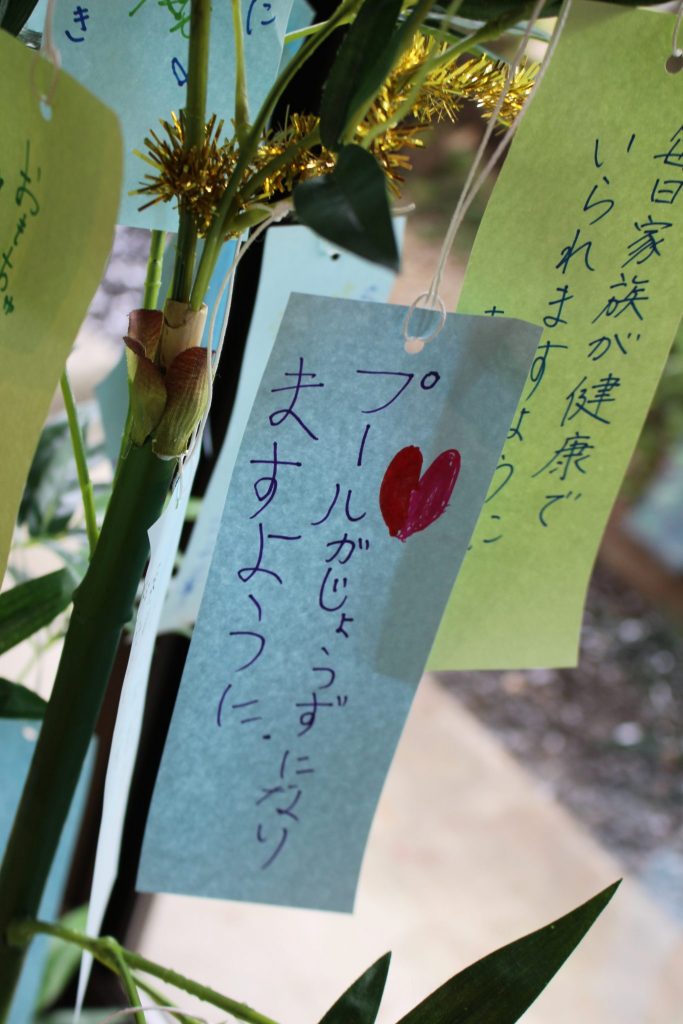 プールがじょうずになり
ますように.
毎日家族が健康で
いられますように
に
き